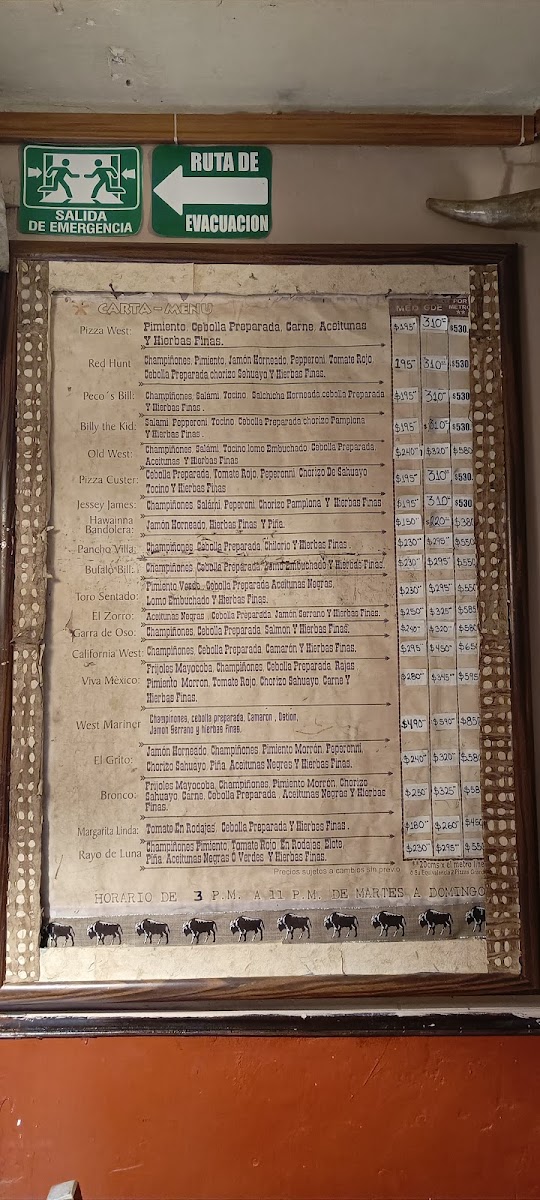 SALIDA
DE EMERGENCIA
RUTA DE
EVACUACION
CARTA-MENU
MED GDE POR METRO
Pizza West: Pimiento, Cebolla Preparada, Carne, Aceitunas $195 310 $530
Y Hierbas Finas.
Red Hunt Champiñones, Pimiento, Jamón Horneado, Pepperoni, Tomate Rojo, 195 310 $530
Cebolla Preparada chorizo Sahuayo Y Hierbas Finas.
Peco´s Bill: Champiñones, Salami, Tocino, Salchicha Horneada cebolla Preparada $195 310 $530
Y Hierbas Finas.
Billy the Kid: Salami, Pepperoni, Tocino, Cebolla Preparada chorizo Pamplona $195 310 $530
Y Hierbas Finas.
Old West: Champiñones, Salami, Tocino, lomo Embuchado, Cebolla Preparada, $240 $320 $580
Aceitunas, Y Hierbas Finas
Pizza Custer: Cebolla Preparada, Tomate Rojo, Peperonni, Chorizo De Sahuayo $195 310 $530
Tocino Y Hierbas Finas
Jessey James: Champiñones, Salami, Peperoni, Chorizo Pamplona Y Hierbas Finas $195 310 $530
Hawainna
Bandolera: Jamón Horneado, Hierbas Finas Y Piña. $150
Pancho Villa: Champiñones, Cebolla Preparada, Chilorio Y Hierbas Finas. $230 $295 $550
Bufalo Bill: Champiñones, Cebolla Preparada, Lomo Embuchado Y Hierbas Finas. $230 $295 $550
Toro Sentado: Pimiento Verde, Cebolla Preparada Aceitunas Negras, $230 $295 $550
Lomo Embuchado Y Hierbas Finas.
El Zorro: Aceitunas Negras, Cebolla Preparada, Jamón Serrano Y Hierbas Finas. $250 $325 $585
Garra de Oso: Champiñones, Cebolla Preparada, Salmon Y Hierbas Finas. $240 $320 $580
California West Champiñones, Cebolla Preparada, Camarón Y Hierbas Finas. $295 $450 $650
Viva México: Frijoles Mayocoba, Champiñones, Cebolla Preparada, Rajas $280 $345 $595
Pimiento Morron, Tomate Rojo, Chorizo Sahuayo, Carne Y
Hierbas Finas.
West Mariner Champiñones, cebolla preparada, Camaron, Ostion, $490 $590 $85
Jamon Serrano y hierbas finas.
El Grito: Jamón Horneado, Champiñones, Pimiento Morrón, Peperonni, $240 $320 $58
Chorizo Sahuayo, Piña, Aceitunas Negras Y Hierbas Finas.
Bronco: Frijoles Mayocoba, Champiñones, Pimiento Morrón, Chorizo $250 $325 $58
Sahuayo, Carne, Cebolla Preparada, Aceitunas Negras Y Hierbas
Finas.
Margarita Linda: Tomate En Rodajas, Cebolla Preparada Y Hierbas Finas. $180 $260
Rayo de Luna Champiñones Pimiento, Tomate Rojo, En Rodajas, Elote $230 $295 $55
Piña, Aceitunas Negras O Verdes Y Hierbas Finas.
Precios sujetos a cambios sin previo
**20cms x el metro
HORARIO DE 3 P.M. A 11 P.M. DE MARTES A DOMINGO